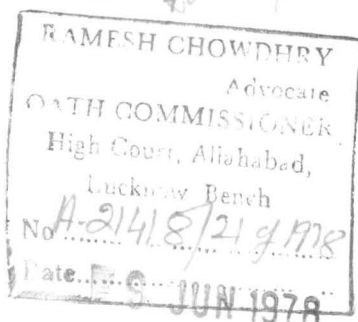 RAMESH CHOWDHRY
Advocate
OATH COMMISSIONER
High Court, Allahabad,
Lucknow Bench
No A-21418/21 of 1978
Date. 5 JUN 1978